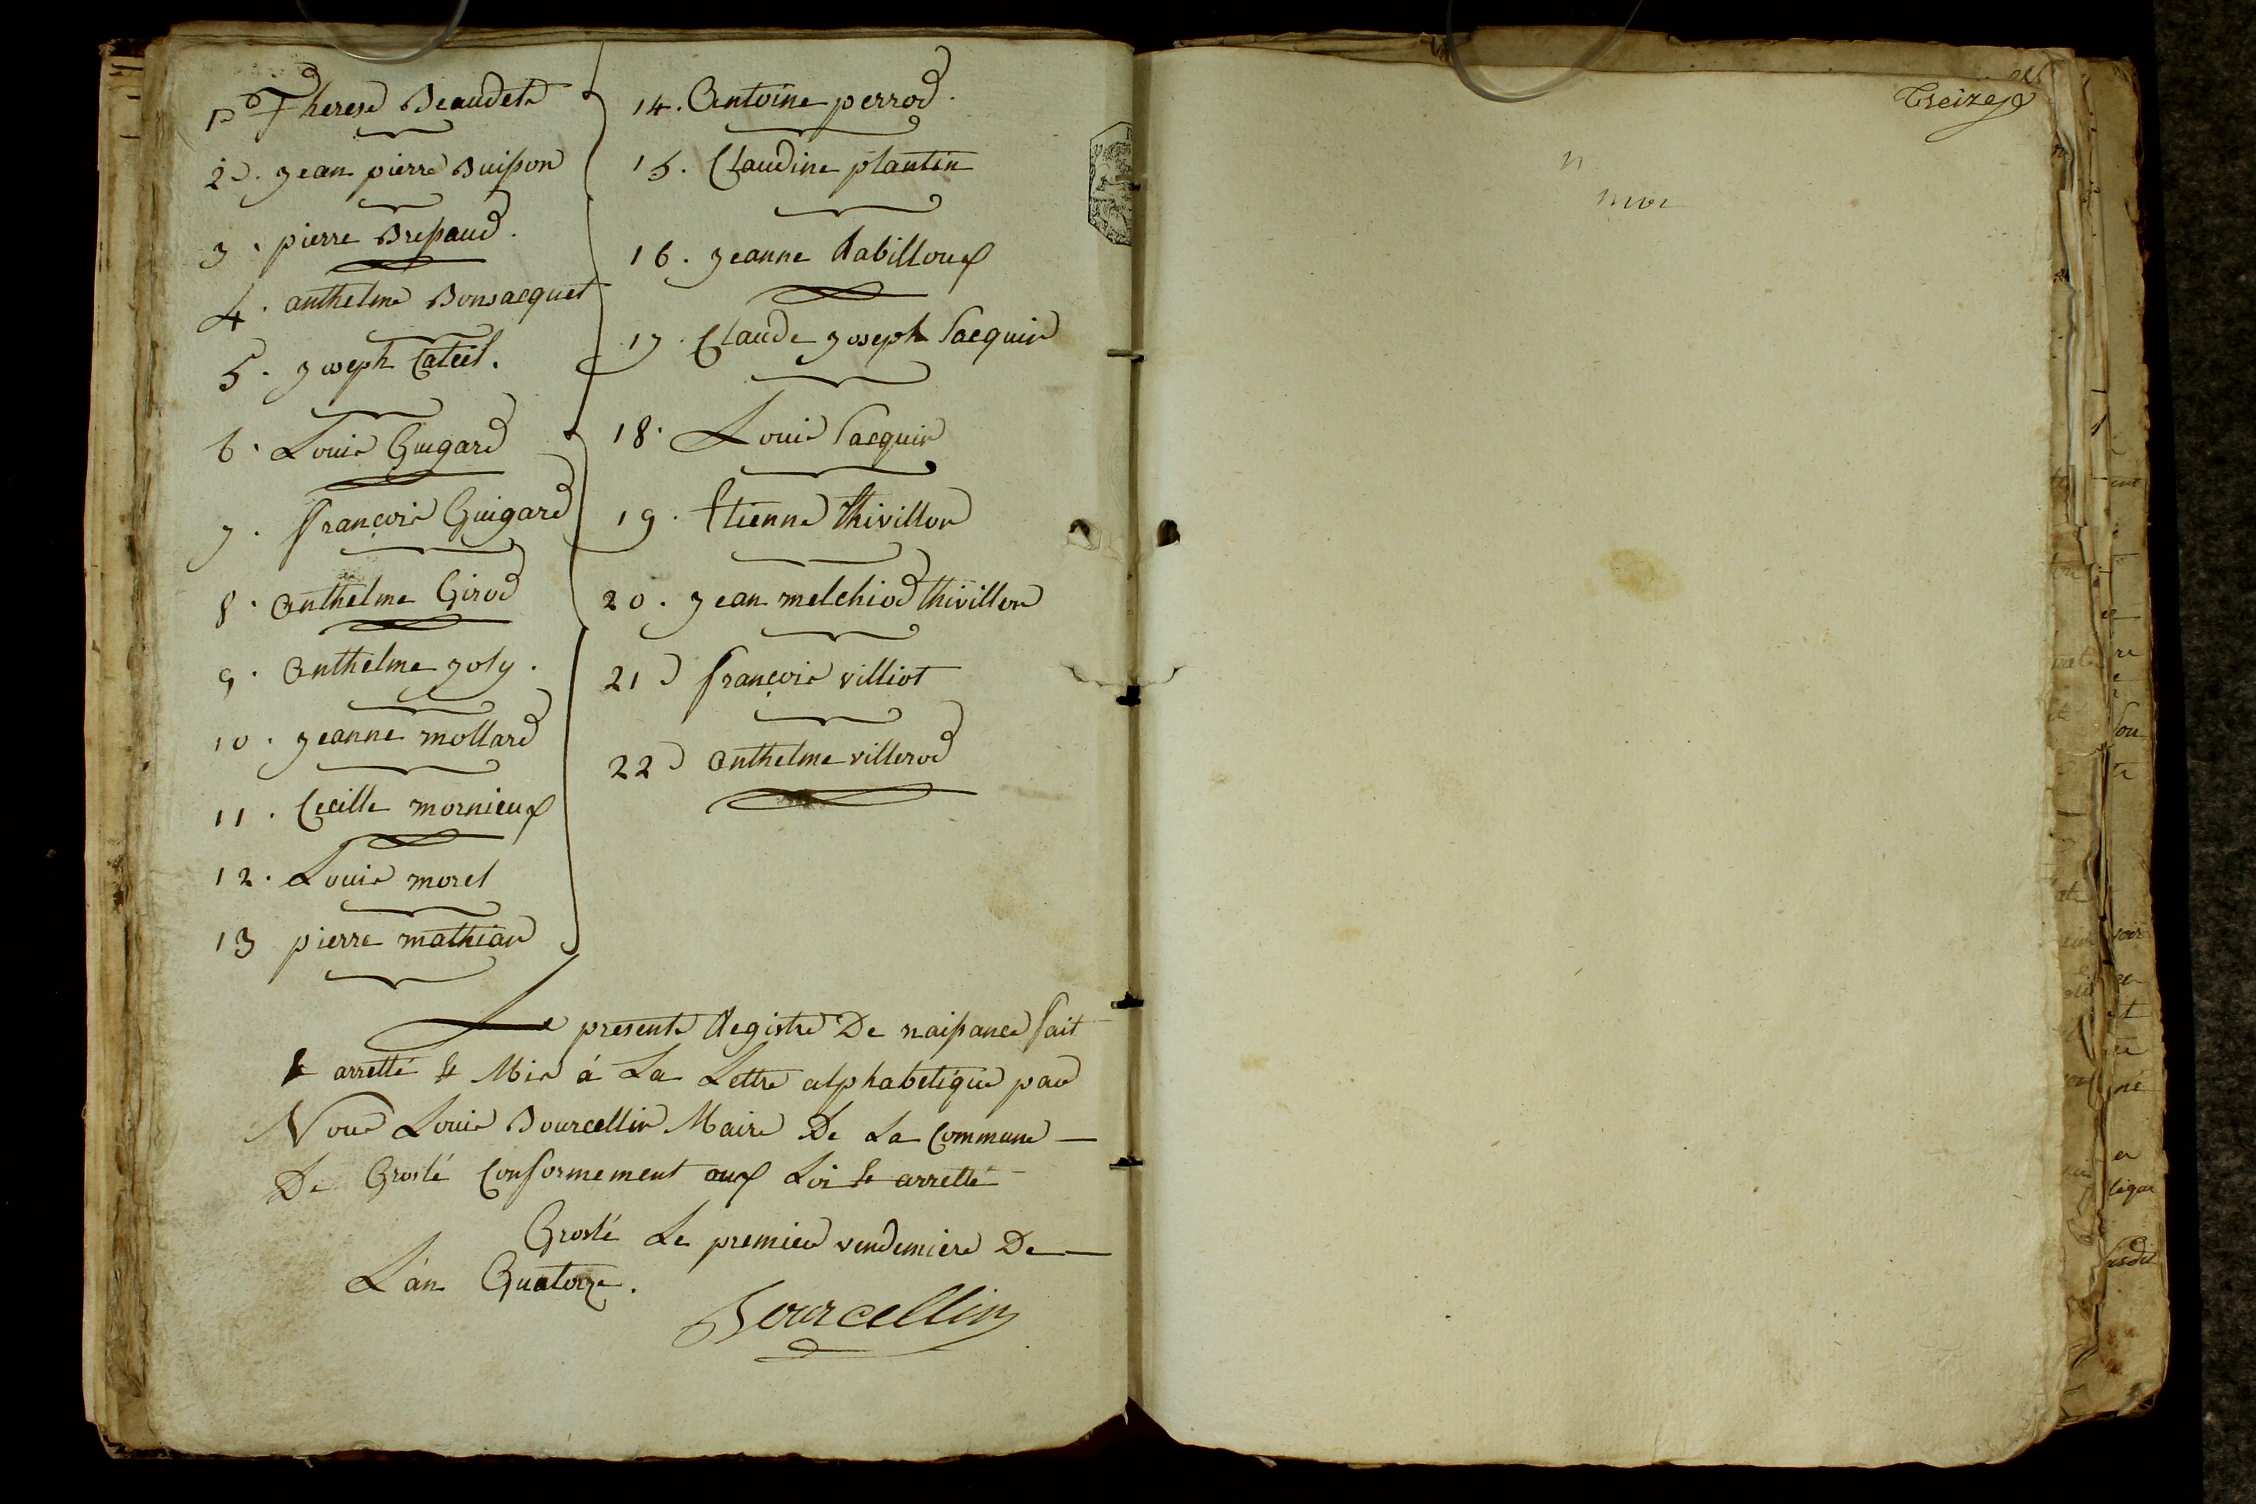 1º Therese Beaudet
2º. jean pierre Buisson
3. pierre Bressaud.
4. anthelme Bonsacquet
5. joseph Catiel.
6. Louis Guigard
7. françois Guigard
8. Anthelme Girod
9. Anthelme joly.
10. jeanne mollard
11. Cecille mornieux
12. Louis morel
13 pierre mathian
14. Antoine perrod.
15. Claudine plantin
16. jeanne Rabilloux
17. Claude joseph Sacquin
18. Louis Sacquin
19. Etienne thivillon
20. jean melchiod thivillon
21) françois villiot
22) Anthelme villerod
Le present Registre De naissance fait
& arretté & Mis á La Lettre alphabetique par
Nous Louis Bourcellin Maire De La Commune
De Groslé Conformement aux Loi & arretté
Groslé Le premier vendemiere De
L'an Quatorze.
Bourcellin
treize